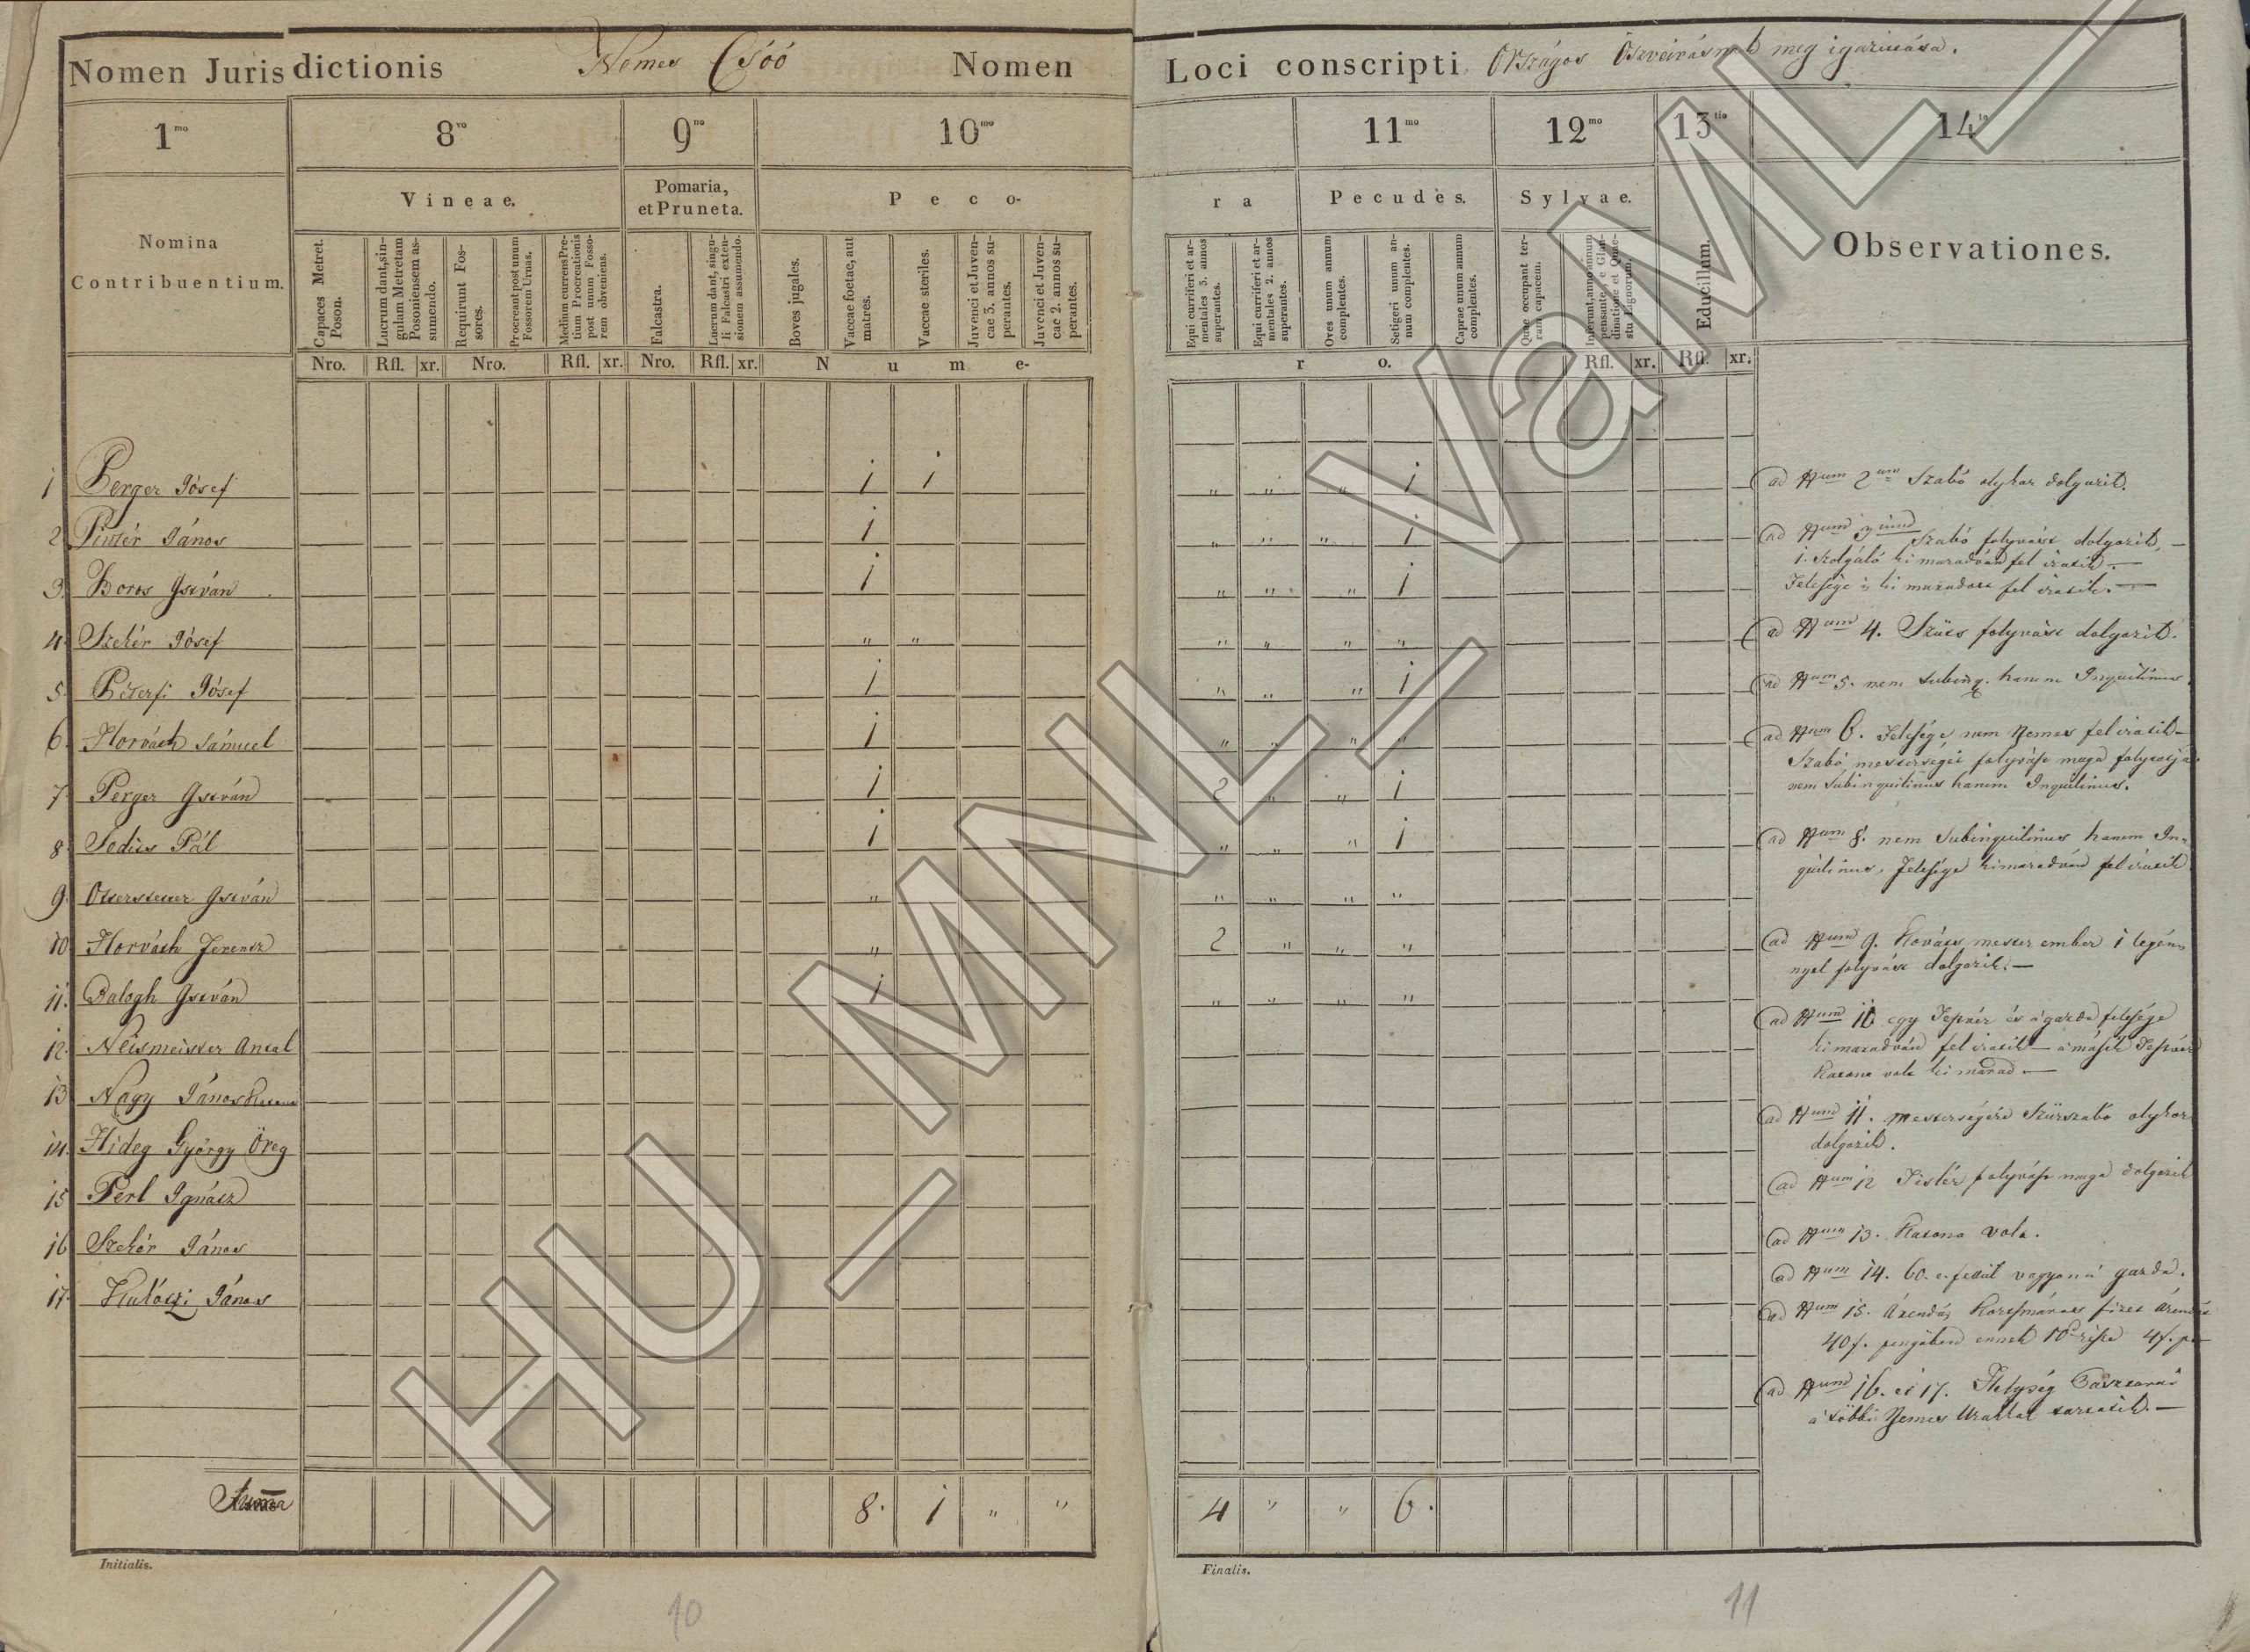 Nomen Jurisdictionis Nemes Csóó Nomen
Loci conscripti Országos Öszveirásnak meg igazitása.
1mo 8vo 9no 10mo
11mo 12mo 13tio 14to
Nomina Contribuentium.
Vineae.
Pomaria, et Pruneta.
Peco-
ra
Pecudes.
Sylvae.
Educillum.
Observationes.
Capaces Metret. Poson.
Lucrum dant, singulam Metretam Posoniensem assumendo.
Requirunt Fossores.
Procreant post unum Fossorem Urnas.
Medium currens Pretium Procreationis post unum Fossorem obveniens.
Falcastra.
Lucrum dant, singuli Falcastri extensionem assumendo.
Boves jugales.
Vaccae foetae, aut matres.
Vaccae steriles.
Juvenci et Juvencae 3. annos superantes.
Juvenci et Juvencae 2. annos superantes.
Equi curriferi et armentales 3. annos superantes.
Equi curriferi et armentales 2. annos superantes.
Oves unum annum complentes.
Setigeri unum annum complentes.
Caprae unum annum complentes.
Quae occupant terram capacem.
Nro. Rfl. xr. Nro. Rfl. xr. Nro. Rfl. xr. N u m e-
r o. Rfl. xr. Rfl. xr.
1 Berger Jósef 1 1 " " " 1
2 Pintér János 1 " " " 1
3. Boros István 1 " " " 1
4. Szekér Jósef " " " " " "
5. Péterfi Jósef 1 " " " 1
6. Horváth Sámuel 1 " " " "
7. Perger István 1 2 " " 1
8. Pál 1 " " " 1
9. István " " " " "
10 Horváth Ferentz " 2 " " "
11. Balogh István 1 " " " "
12. Neismeister Antal
13 Nagy János Katona
14. Hideg György Öreg
15 Perl Ignátz
16 Szekér János
17. János
Summa 8. 1 " "
4 " " 6.
ad Num 2um Szabó olykor dolgozik.
ad Num 3 Szabó folyvást dolgozik, —
1. Szolgáló ki maradván fel iratik —
Felesége is ki maradott fel iratik. —
ad Num 4. Szűcs folyvást dolgozik.
ad Num 5. nem subinq. hanem Inquilinus.
ad Num 6. Felesége nem Nemes fel iratik —
Szabó mesterségét folyvást maga folytatja
nem Subinquilinus hanem Inquilinus.
ad Num 8. nem Subinquilinus hanem In-
quilinus, Felesége kimaradván fel iratik
ad Num 9. Kovács mester ember 1 legén-
nyel folyvást dolgozik. —
ad Num 10 egy Testvér és a gazda felesége
kimaradván fel iratik — a másik Testvér
Katona volt ki marad. —
ad Num 11. mesterségére Szürszabó olykor
dolgozik.
ad Num 12 folyvást maga dolgozik
ad Num 13. Katona volt.
ad Num 14. 60. e. felül vagyon a' gazda.
ad Num 15. Árendás Kortsmáros fizet Árendát
40 f. pengőben ennek 10d része 4 f. p
ad Num 16. és 17. Helység
a' többi Nemes Urakkal tartatik. —
Initialis.
Finalis.
10
11
HU_MNL_VaML_